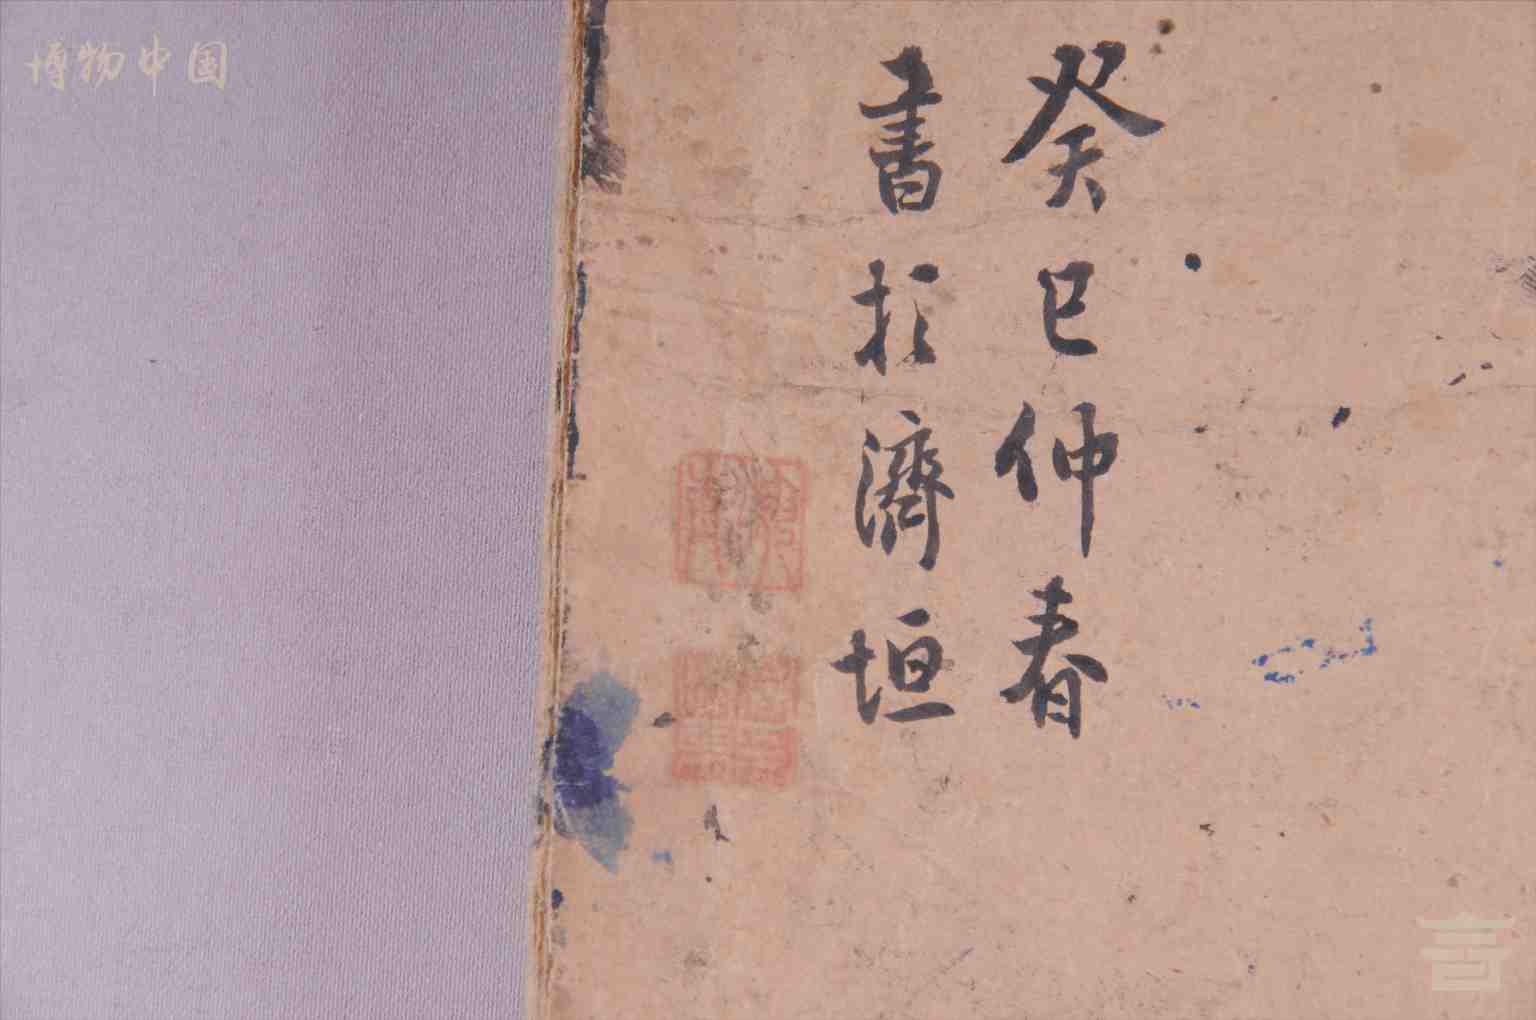 博物中国
癸巳仲春
書於濟垣